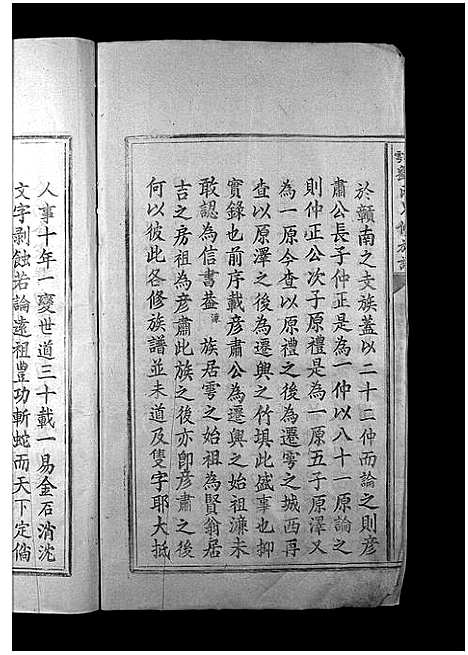 於贛南之支族蓋以二十二仲而論之則彦
肅公長子仲正是為一仲以八十一原論之
則仲正公次子原禮是為一原五子原澤又
為一原今查以原禮之後為遷雩之城西再
查以原澤之後為遷興之竹垻此盛事也抑
實錄也前序載彦肅公為遷興之始祖濂未
敢認為信書益濂族居雩之始祖為賢翁居
吉之房祖為彦肅此族之後亦卽彦肅之後
何以彼此各修族譜並未道及隻字耶大抵
人事十年一變世道三十載一易金石消沈
文字剥蝕若論遠祖豐功斬蛇而天下定倘